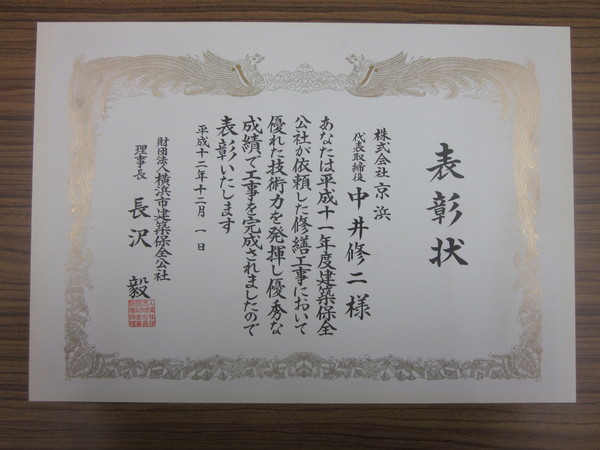 表彰状
株式会社京浜
代表取締役 中井修二様
あなたは平成十一年度建築保全
公社が依頼した修繕工事において
優れた技術力を発揮し優秀な
成績で工事を完成されましたので
表彰いたします
平成十二年十二月一日
財団法人横浜市建築保全公社
理事長 長沢毅